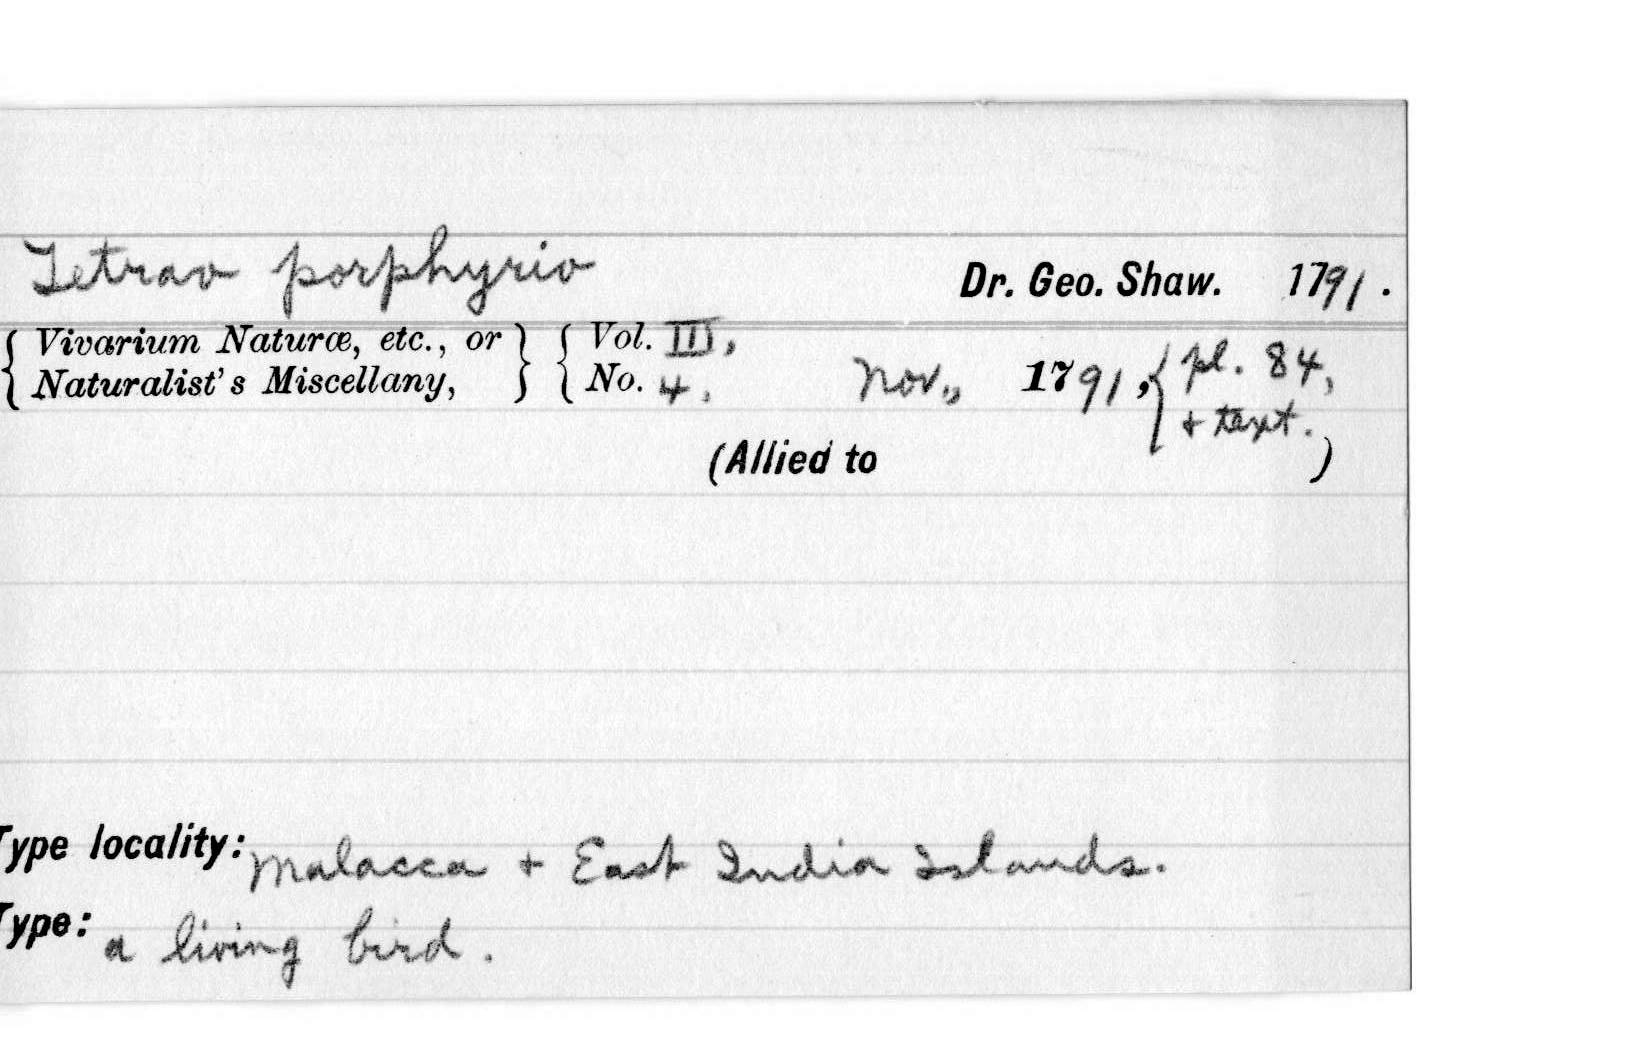 Tetrao porphyrio Dr. Geo. Shaw. 1791.
{ Vivarium Naturæ, etc., or } { Vol. III,
{ Naturalist's Miscellany, } { No. 4. Nov., 1791, { pl. 84,
+ text.
(Allied to )
Type locality: Malacca + East India Islands.
Type: a living bird.